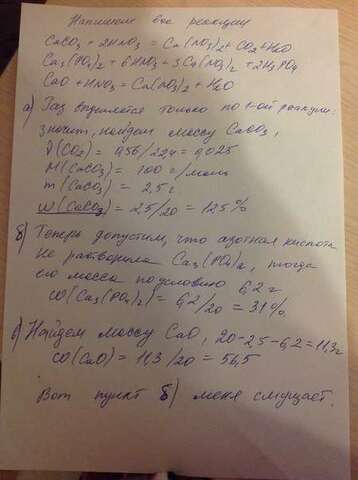 Напишем все реакции
CaCO₃ + 2HNO₃ = Ca(NO₃)₂ + CO₂ + H₂O
Ca₃(PO₄)₂ + 6HNO₃ = 3Ca(NO₃)₂ + 2H₃PO₄
CaO + HNO₃ = Ca(NO₃)₂ + H₂O
а) Газ выделяется только по 1-ой реакции.
значит, найдем массу CaCO₃,
ν(CO₂) = 0,56/22,4 = 0,025
M(CaCO₃) = 100 г/моль
m(CaCO₃) = 2,5 г
w(CaCO₃) = 2,5/20 = 12,5%
б) Теперь допустим, что азотная кислота
не растворила Ca₃(PO₄)₂, тогда
его масса по условию 6,2 г
ω(Ca₃(PO₄)₂) = 6,2/20 = 31%
в) Найдем массу CaO, 20-2,5-6,2=11,3г
ω(CaO) = 11,3/20 = 56,5
Вот пункт б) меня смущает.